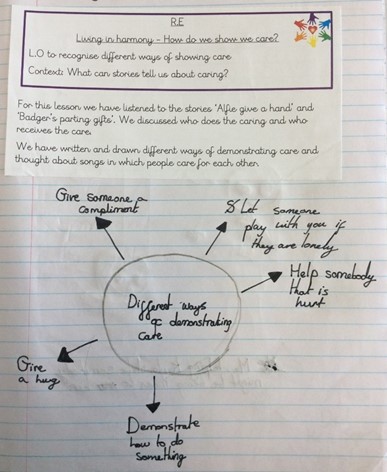 R.E
Living in harmony - How do we show we care?
L.O to recognise different ways of showing care
Context: What can stories tell us about caring?
For this lesson we have listened to the stories 'Alfie give a hand' and
'Badger's parting gifts'. We discussed who does the caring and who
receives the care.
We have written and drawn different ways of demonstrating care and
thought about songs in which people care for each other.
Give someone a
compliment
Let someone
play with you if
they are lonely
Help somebody
that is
hurt
Different ways
of demonstrating
care
Give
a hug
Demonstrate
how to do
something